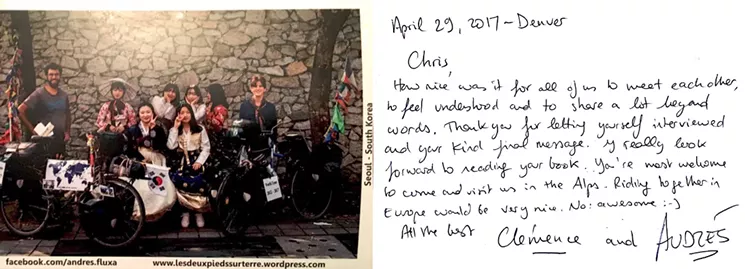 Seoul - South Korea
facebook.com/andres.fluxa
www.lesdeuxpiedssurterre.wordpress.com
April 29, 2017 - Denver
Chris,
How nice was it for all of us to meet each other,
to feel understood and to share a lot beyond
words. Thank you for letting yourself interviewed
and your kind final message. I really look
forward to reading your book. You're most welcome
to come and visit us in the Alps. Riding together in
Europe would be very nice. No: awesome :-)
All the best
Clémence and ANDRÉS